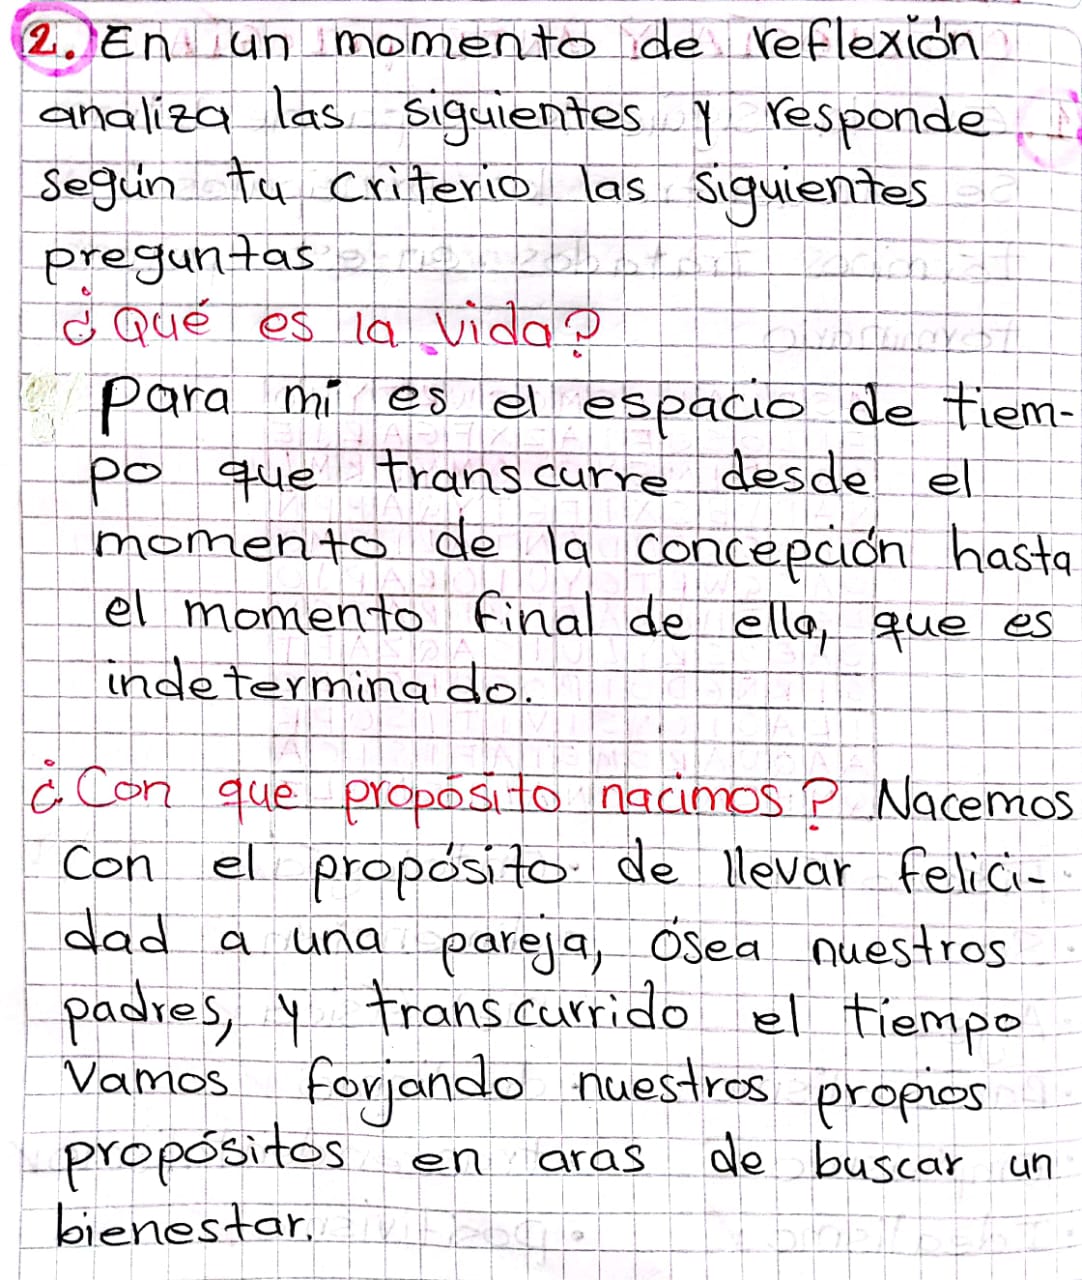 2. En un momento de reflexión
analiza las siguientes y responde
según tu criterio las siguientes
preguntas
¿Qué es la vida?
Para mi es el espacio de tiem-
po que transcurre desde el
momento de la concepción hasta
el momento final de ella, que es
indeterminado.
¿Con que propósito nacimos? Nacemos
Con el propósito de llevar felici-
dad a una pareja, ósea nuestros
padres, y transcurrido el tiempo
Vamos forjando nuestros propios
propósitos en aras de buscar un
bienestar.